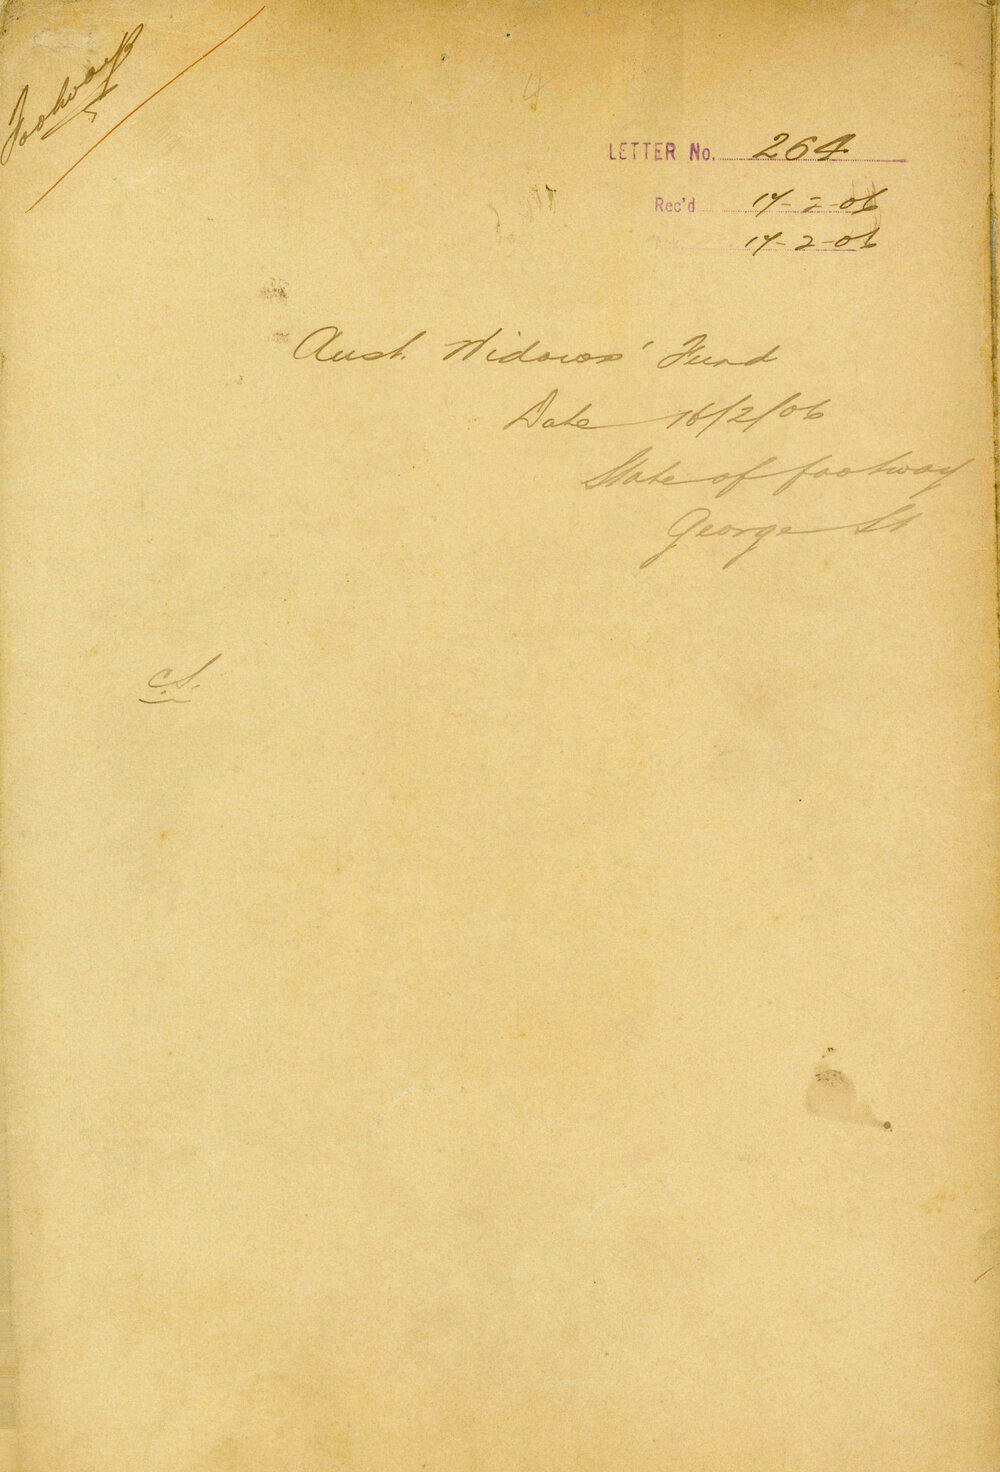 Footways
LETTER No. 264
Rec'd 17-2-06
Ack. 17-2-06
Aust. Widows' Fund
Date 16/2/06
State of footway
George St
C.S.